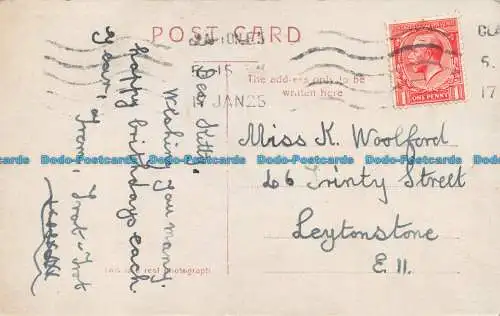 POST CARD
5.15
17 JAN 25
The address only to be
written here
ONE PENNY
5.
17
Dear Kitty.
Wishing you many
happy birthdays each
year,
from, Trot Trot
Miss K. Woolford
26 Trinty Street
Leytonstone
E 11.
This is a real photograph
Dodo-Postcards Dodo-Postcards Dodo-Postcards Dodo-Postcards